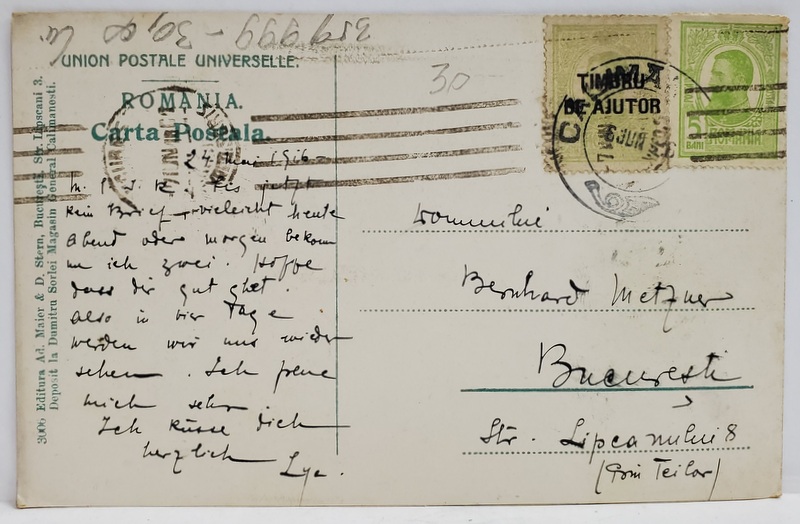 30
UNION POSTALE UNIVERSELLE.
ROMANIA.
Carta Postala.
24 Mai 1916
Bis jetzt
kein Brief vieleicht heute
Abend oder morgen bekom
me ich zwei. Hoffe
dass dir gut ghet.
Also in vier Tage
werden wir uns wieder
sehen. Ich freue
mich sehr.
Ich küsse dich
herzlich
3006 Editura Ad. Maier & D. Stern, Bucuresti, Str. Lipscani 3.
Deposit la Dumitru Sorlei Magasin General Calimanesti.
TIMBRU
DE AJUTOR
6 JUN
BANI
ROMANIA
Domnului
Bernhard Metzner
Bucuresti
Str. Lipcanului 8
(prin Teilor)